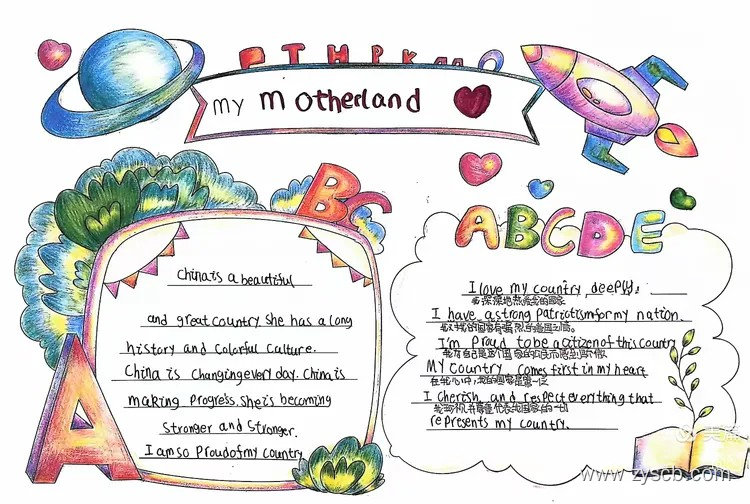 my motherland
ABCDE
Bc
A
China is a beautiful
and great country she has a long
history and colorful culture.
China is changing every day. China is
making progress. she is becoming
stronger and stronger.
I am so proud of my country
I love my country deeply.
我深深地热爱我的国家
I have a strong patriotism for my nation.
我对我的国家有强烈的爱国主义
I'm proud to be a citizen of this country
My country comes first in my heart
在我心中,我的国家是第一位
I cherish and respect everything that
我珍视并尊重代表我国家的一切
represents my country.
www.zyscb.com